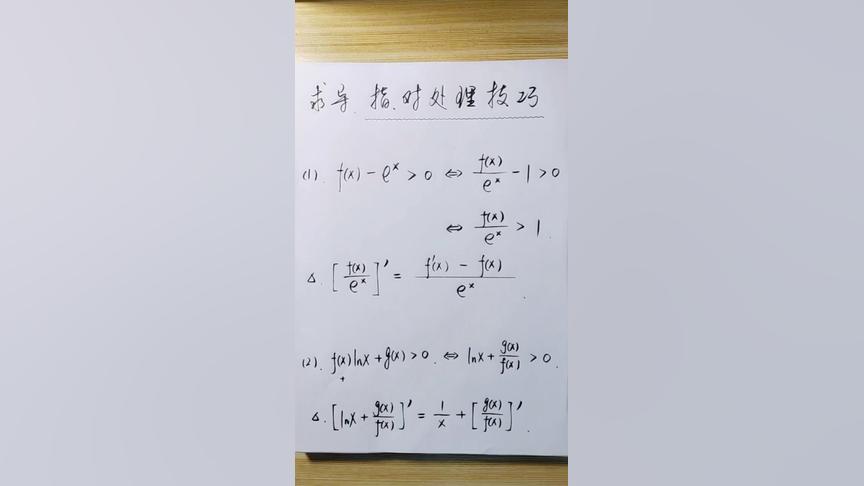 求导. 指.对处理技巧
(1). f(x) - eˣ > 0 ⇔ f(x)/eˣ - 1 > 0
⇔ f(x)/eˣ > 1.
△. [f(x)/eˣ]′ = (f′(x) - f(x))/eˣ.
(2). f(x)lnx + g(x) > 0. ⇔ lnx + g(x)/f(x) > 0.
+
△. [lnx + g(x)/f(x)]′ = 1/x + [g(x)/f(x)]′.